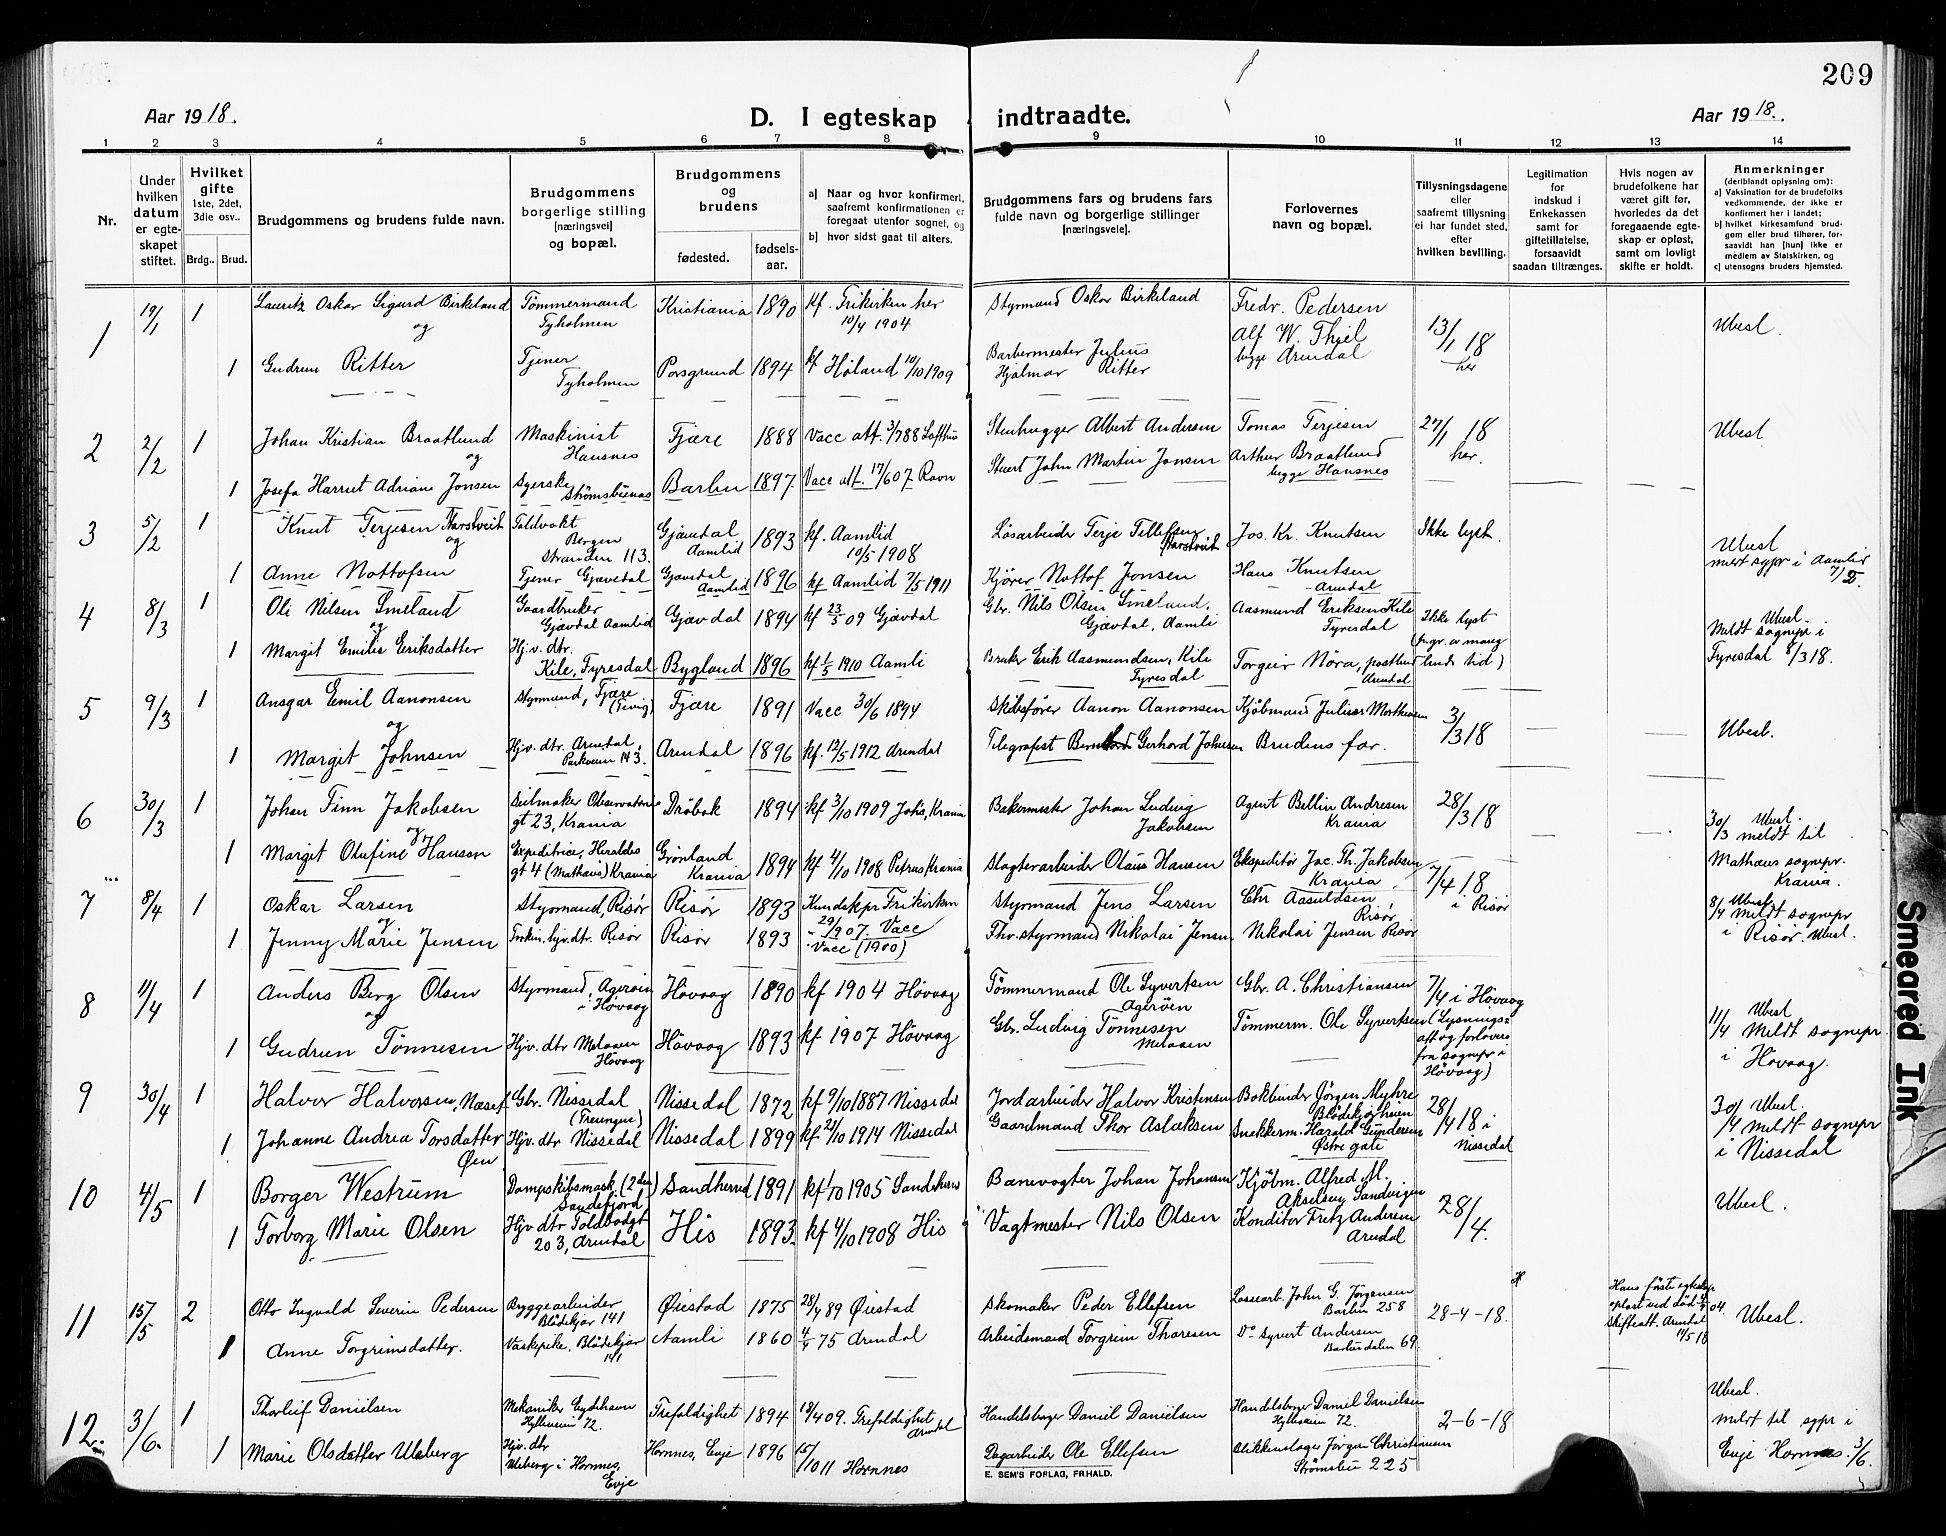 209
Aar 1918.
D. I egteskap indtraadte.
Aar 1918.
1 2 3 4 5 6 7 8 9 10 11 12 13 14
Nr.
Under hvilken datum er egteskapet stiftet.
Hvilket gifte 1ste, 2det, 3die osv..
Brdg.. Brud.
Brudgommens og brudens fulde navn.
Brudgommens borgerlige stilling [næringsvei] og bopæl.
Brudgommens og brudens
fødested.
fødselsaar.
a) Naar og hvor konfirmert, saafremt konfirmationen er foregaat utenfor sognet, og
b) hvor sidst gaat til alters.
Brudgommens fars og brudens fars fulde navn og borgerlige stillinger [næringsveie].
Forlovernes navn og bopæl.
Tillysningsdagene eller saafremt tillysning ei har fundet sted, efter hvilken bevilling.
Legitimation for indskud i Enkekassen samt for giftetillatelse, forsaavidt saadan tiltrænges.
Hvis nogen av brudefolkene har været gift før, hvorledes da det foregaaende egteskap er opløst, samt om lovligt skifte er holdt.
Anmerkninger (deriblandt oplysning om):
a) Vaksination for de brudefolks vedkommende, der ikke er konfirmert her i landet;
b) hvilket kirkesamfund brudgom eller brud tilhører, forsaavidt han [hun] ikke er medlem av Statskirken, og
c) utensogns bruders hjemsted.
1 19/1 1 Lauritz Oskar Sigurd Birkeland Tømmermand Tyholmen Kristiania 1890 kf. Frikirken her 10/4 1904 Styrmand Oskar Birkeland Fredr. Pedersen 13/1 18 her Ubesl.
og
1 Gudrun Ritter Tjener Tyholmen Porsgrund 1894 kf Høland 10/10 1909 Barbermester Julius Hjalmar Ritter Alf W. Thiel begge Arendal
2 2/2 1 Johan Kristian Braatlund Maskinist Hausnes Fjære 1888 Vacc att. 3/7 88 Lofthus Stenhugger Albert Andersen Tomas Terjesen 27/1 18 her. Ubesl
og
1 Josefa Harriet Adriane Jonsen Syerske Strømsbuenas Barbu 1897. Vacc att. 17/6 07 Ravn Stuert John Martin Jonsen Arthur Braatlund begge Hausnes
3 5/2 1 Knut Terjesen Harstveit Toldvakt Bergen Stranden 113. Gjøvedal Aamlid 1893 kf. Aamlid 10/5 1908 Løsarbeider Terje Tellefsen Harstveit Jos. Kr. Knutsen Ikke lyst. Ubesl
meldt sgpr i Aamlid
og
1 Anne Nottofsen Tjener Gjøvedal Gjøvdal Aamlid 1896 kf Aamlid 7/5 1911 Kjører Nottof Jonsen Hans Knutsen Arendal
4 8/3 1 Ole Nilsen Smeland Gaardbruker Gjøvdal Aamlid Gjøvdal 1894 kf 23/5 09 Gjøvdal Gbr. Nils Olsen Smeland, Gjøvdal, Aamli Aasmund Eriksen Kile Fyresdal Ikke lyst (p.gr. av mang lende tid) Ubesl.
Meldt sognepr i Fyresdal 8/3 18.
og
1 Margit Emilie Eriksdatter Hj.v. dtr. Kile, Fyresdal Bygland 1896 kf 1/5 1910 Aamli Bruker Erik Aasmundsen, Kile Fyresdal Torgeir Nöra, postbud Arendal
5 9/3 1 Ansgar Emil Aanonsen Styrmand, Fjære (Fevig) Fjære 1891 Vacc 30/6 1894 Skibsfører Aanon Aanonsen Kjøbmand Julius Morthensen 3/3 18 Ubesl.
og
1 Margit Johnsen Hjv. dtr. Arendal, Parkveien 143. Arendal 1896 kf. 12/5 1912 Arendal Telegrafist Gerhard Johnsen Brudens far.
6 30/3 1 Johan Finn Jakobsen Seilmaker Observatorie gt 23, Krania Drøbak 1894 kf 3/10 1909 Johs, Krania Bakermester Johan Ludvig Jakobsen Agent Bellin Andresen Krania 28/3 18 Ubesl.
30/3 meldt til Mathæus sognepr. Krania.
og
1 Margit Olufine Hansen Expeditrice, Heraldes gt 4 (Mathæus) Krania Grönland Krania 1894 kf 4/10 1908 Petrus, Krania Slagterarbeider Olaus Hansen Ekspeditör Jac. Th. Jakobsen Krania
7 8/4 1 Oskar Larsen Styrmand, Risør Risør 1893 Kundskpr Frikirken 29/9 07. Vacc Styrmand Jens Larsen Chr Aasuldsen, Risør 7/4 18 i Risør Ubesl
8/4 meldt sognepr i Risør. Ubesl.
og
1 Jenny Marie Jensen Frikir. hjv. dtr. Risør Risør 1893 Vacc (1900) Thv. styrmand Nikolai Jensen Nikolai Jensen Risør
8 11/4 1 Anders Berg Olsen Styrmand, Agerøen i Høvaag Høvaag 1890 kf 1904 Høvaag Tømmermand Ole Syvertsen Agerøen Gbr. A. Christiansen 7/4 i Høvaag (Lysningsatt og forlovere fra sognepr i Høvaag) Ubesl
11/4 Meldt sognepr i Høvaag.
og
1 Gudrun Tønnesen Hjv. dtr Melaasen Høvaag Høvaag 1893 kf 1907 Høvaag Gbr. Ludvig Tønnesen Melaasen Tømmerm. Ole Syvertsen
9 30/4 1 Halvor Halvorsen, Næset Gbr. Nissedal (Treungen) Nissedal 1872 kf 9/10 1887 Nissedal Jordarbeider Halvor Kristensen Bokbinder Jörgen Myhre Blödekjærheien 28/4 18 i Nissedal Ubesl.
30/4 meldt sognepr i Nissedal
1 Johanne Andrea Torsdatter Øen Hjv. dtr Nissedal Nissedal 1899 kf 21/10 1914 Nissedal Gaardmand Thor Aslaksen Snekkerm. Harald Gundersen Østre gate
10 4/5 1 Borger Westrum Dampskibsmask. (2den) Sandefjord Sandherred 1891 kf 1/10 1905 Sandeherred Banevogter Johan Johansen Kjøbm. Alfred M. Akselsen, Sandvigen 28/4. Ubesl.
1 Torborg Marie Olsen Hjv dtr Toldbodgt 203, Arendal His 1893. kf 4/10 1908 His Vagtmester Nils Olsen Konditor Fretz Andersen Arendal
11 15/5 2 Otto Ingvald Severin Pedersen Byggearbeider Blödekjær 141 Øiestad 1875 28/4 89 Øiestad Skomaker Peder Ellefsen Lossearb. John G. Jørgensen Barbu 258 28-4-18. Hans første egteskap opløst ved död 04. Skifteatt. Arendal 11/5 18 Ubesl.
1 Anne Torgrimsdatter. Vaskepike. Blödekjær 141 Aamli 1860 4/4 75 Arendal Arbeidsmand Torgrim Tharesen Do Syvert Andersen Barbudalen 69.
12 3/6. 1 Thorleif Danielsen Mekaniker Eydehavn Hylleveien 72. Trefoldighet 1894 18/4 09. Trefoldighet Arendal Handelsborger Daniel Danielsen Handelsborger Daniel Danielsen Hylleveien 72. 2-6-18 Ubesl.
meldt til sgpr i Evje Hornnes 3/6.
1 Marie Olsdatter Uleberg Hjv. dtr Uleberg i Hornnes, Evje Hornnes, Evje 1896 15/10 11 Hornnes Dagarbeider Ole Ellefsen Blikkenslager Jørgen Christensen Strømsbu 225
E. SEM'S FORLAG, FR.HALD.
Smeared Ink